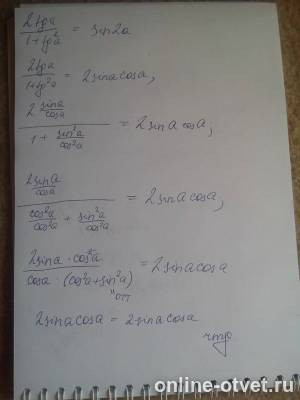 2tga / 1+tg²a = sin2a
2tga / 1+tg²a = 2sina cosa;
2 sina/cosa / 1 + sin²a/cos²a = 2sina cosa;
2sina/cosa / cos²a/cos²a + sin²a/cos²a = 2sina cosa;
2sina · cos²a / cosa · (cos²a+sin²a) = 2sina cosa
2sina cosa = 2sina cosa
чтд
online-otvet.ru